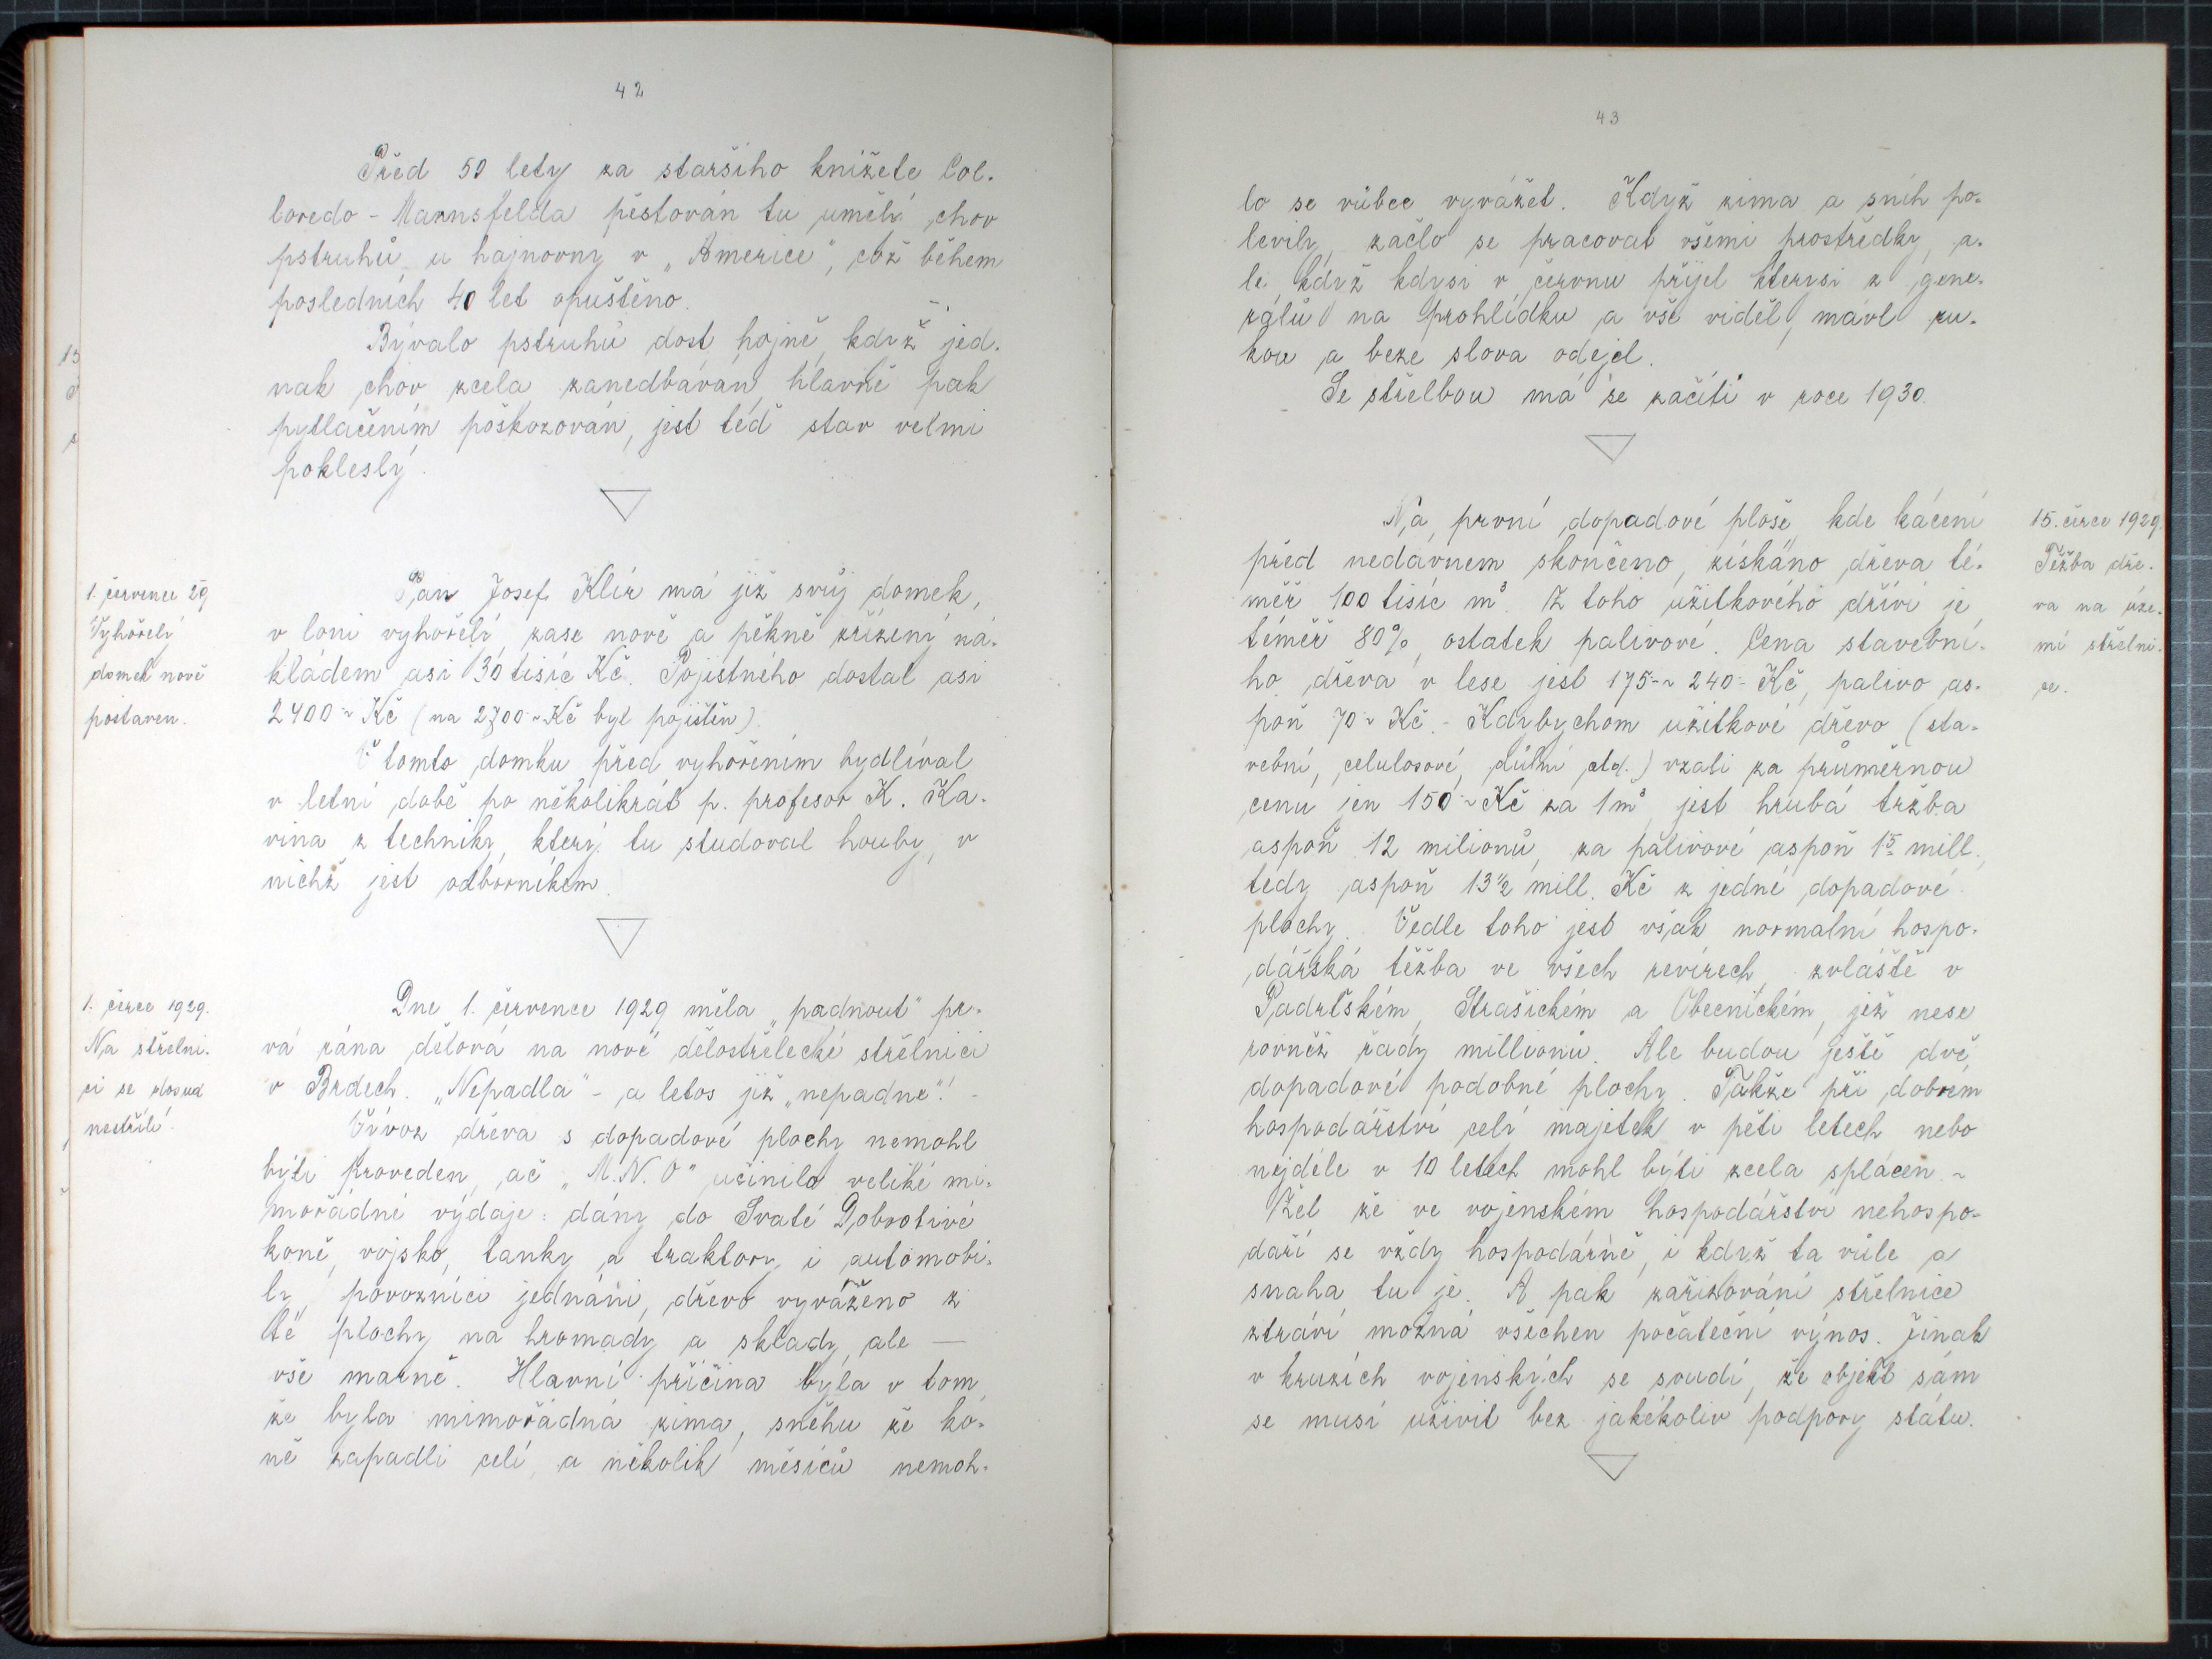 42
Před 50 lety za staršího knížete Col-
loredo-Mannsfelda pěstován tu umělý chov
pstruhů u hajnovny v „Americe", což během
posledních 40 let opuštěno.
Bývalo pstruhů dost hojně, když jed-
nak chov zcela zanedbáván, hlavně pak
pytlačením poškozován, jest teď stav velmi
pokleslý.
1. července 29
Vyhořelý
domek nově
postaven.
Pan Josef Klír má již svůj domek,
v loni vyhořelý, zase nově a pěkně zřízený ná-
kladem asi 30 tisíc Kč. Pojistného dostal asi
2400 Kč (na 2700 Kč byl pojištěn).
V tomto domku před vyhořením bydlíval
v letní době po několikrát p. profesor K. Ka-
vina z techniky, který tu studoval houby, v
nichž jest odborníkem.
1. čerce 1929.
Na střelni-
ci se dosud
nestřílí.
Dne 1. července 1929 měla „padnout" pr-
vá rána dělová na nové dělostřelecké střelnici
v Brdech. „Nepadla" - a letos již „nepadne"! -
Vývoz dřeva s dopadové plochy nemohl
býti proveden, ač „M.N.O" učinilo veliké mi-
mořádné výdaje: dány do Svaté Dobrotivé
koně, vojsko, tanky a traktory i automobi-
ly, povozníci jednáni, dřevo vyváženo z
té plochy na hromady a sklady, ale —
vše marně. Hlavní příčina byla v tom,
že byla mimořádná zima, sněhu že ko-
ně zapadli celí, a několik měsíců nemoh-
43
lo se vůbec vyvážet. Když zima a sníh po-
levily, začlo se pracovat všemi prostředky, a-
le když kdysi v červnu přijel kterýsi z gene-
rálů na prohlídku a vše viděl, mávl ru-
kou a beze slova odejel.
Se střelbou má se začíti v roce 1930.
15. čerce 1929.
Těžba dře-
va na úze-
mí střelni-
ce.
Na první dopadové ploše, kde kácení
před nedávnem skončeno, získáno dřeva té-
měř 100 tisíc m³. Z toho užitkového dříví je
téměř 80%, ostatek palivové. Cena stavební-
ho dřeva v lese jest 175-240 Kč, palivo as-
poň 70 Kč. - Kdybychom užitkové dřevo (sta-
vební, celulosové, důlní atd.) vzali za průměrnou
cenu jen 150 Kč za 1 m³, jest hrubá tržba
aspoň 12 milionů, za palivové aspoň 1⁵ mill.,
tedy aspoň 13½ mill. Kč z jedné dopadové
plochy. Vedle toho jest však normalní hospo-
dářská těžba ve všech revírech, zvláště v
Padrťském, Strašickém a Obecnickém, jež nese
rovněž řady millionů. Ale budou ještě dvě
dopadové podobné plochy. Takže při dobrém
hospodářství celý majetek v pěti letech nebo
nejdéle v 10 letech mohl býti zcela splacen. -
Žel že ve vojenském hospodářství nehospo-
daří se vždy hospodárně, i když ta vůle a
snaha tu je. A pak zařizování střelnice
ztráví možná všechen počáteční výnos. Jinak
v kruzích vojenských se soudí, že objekt sám
se musí uživit bez jakékoliv podpory státu.